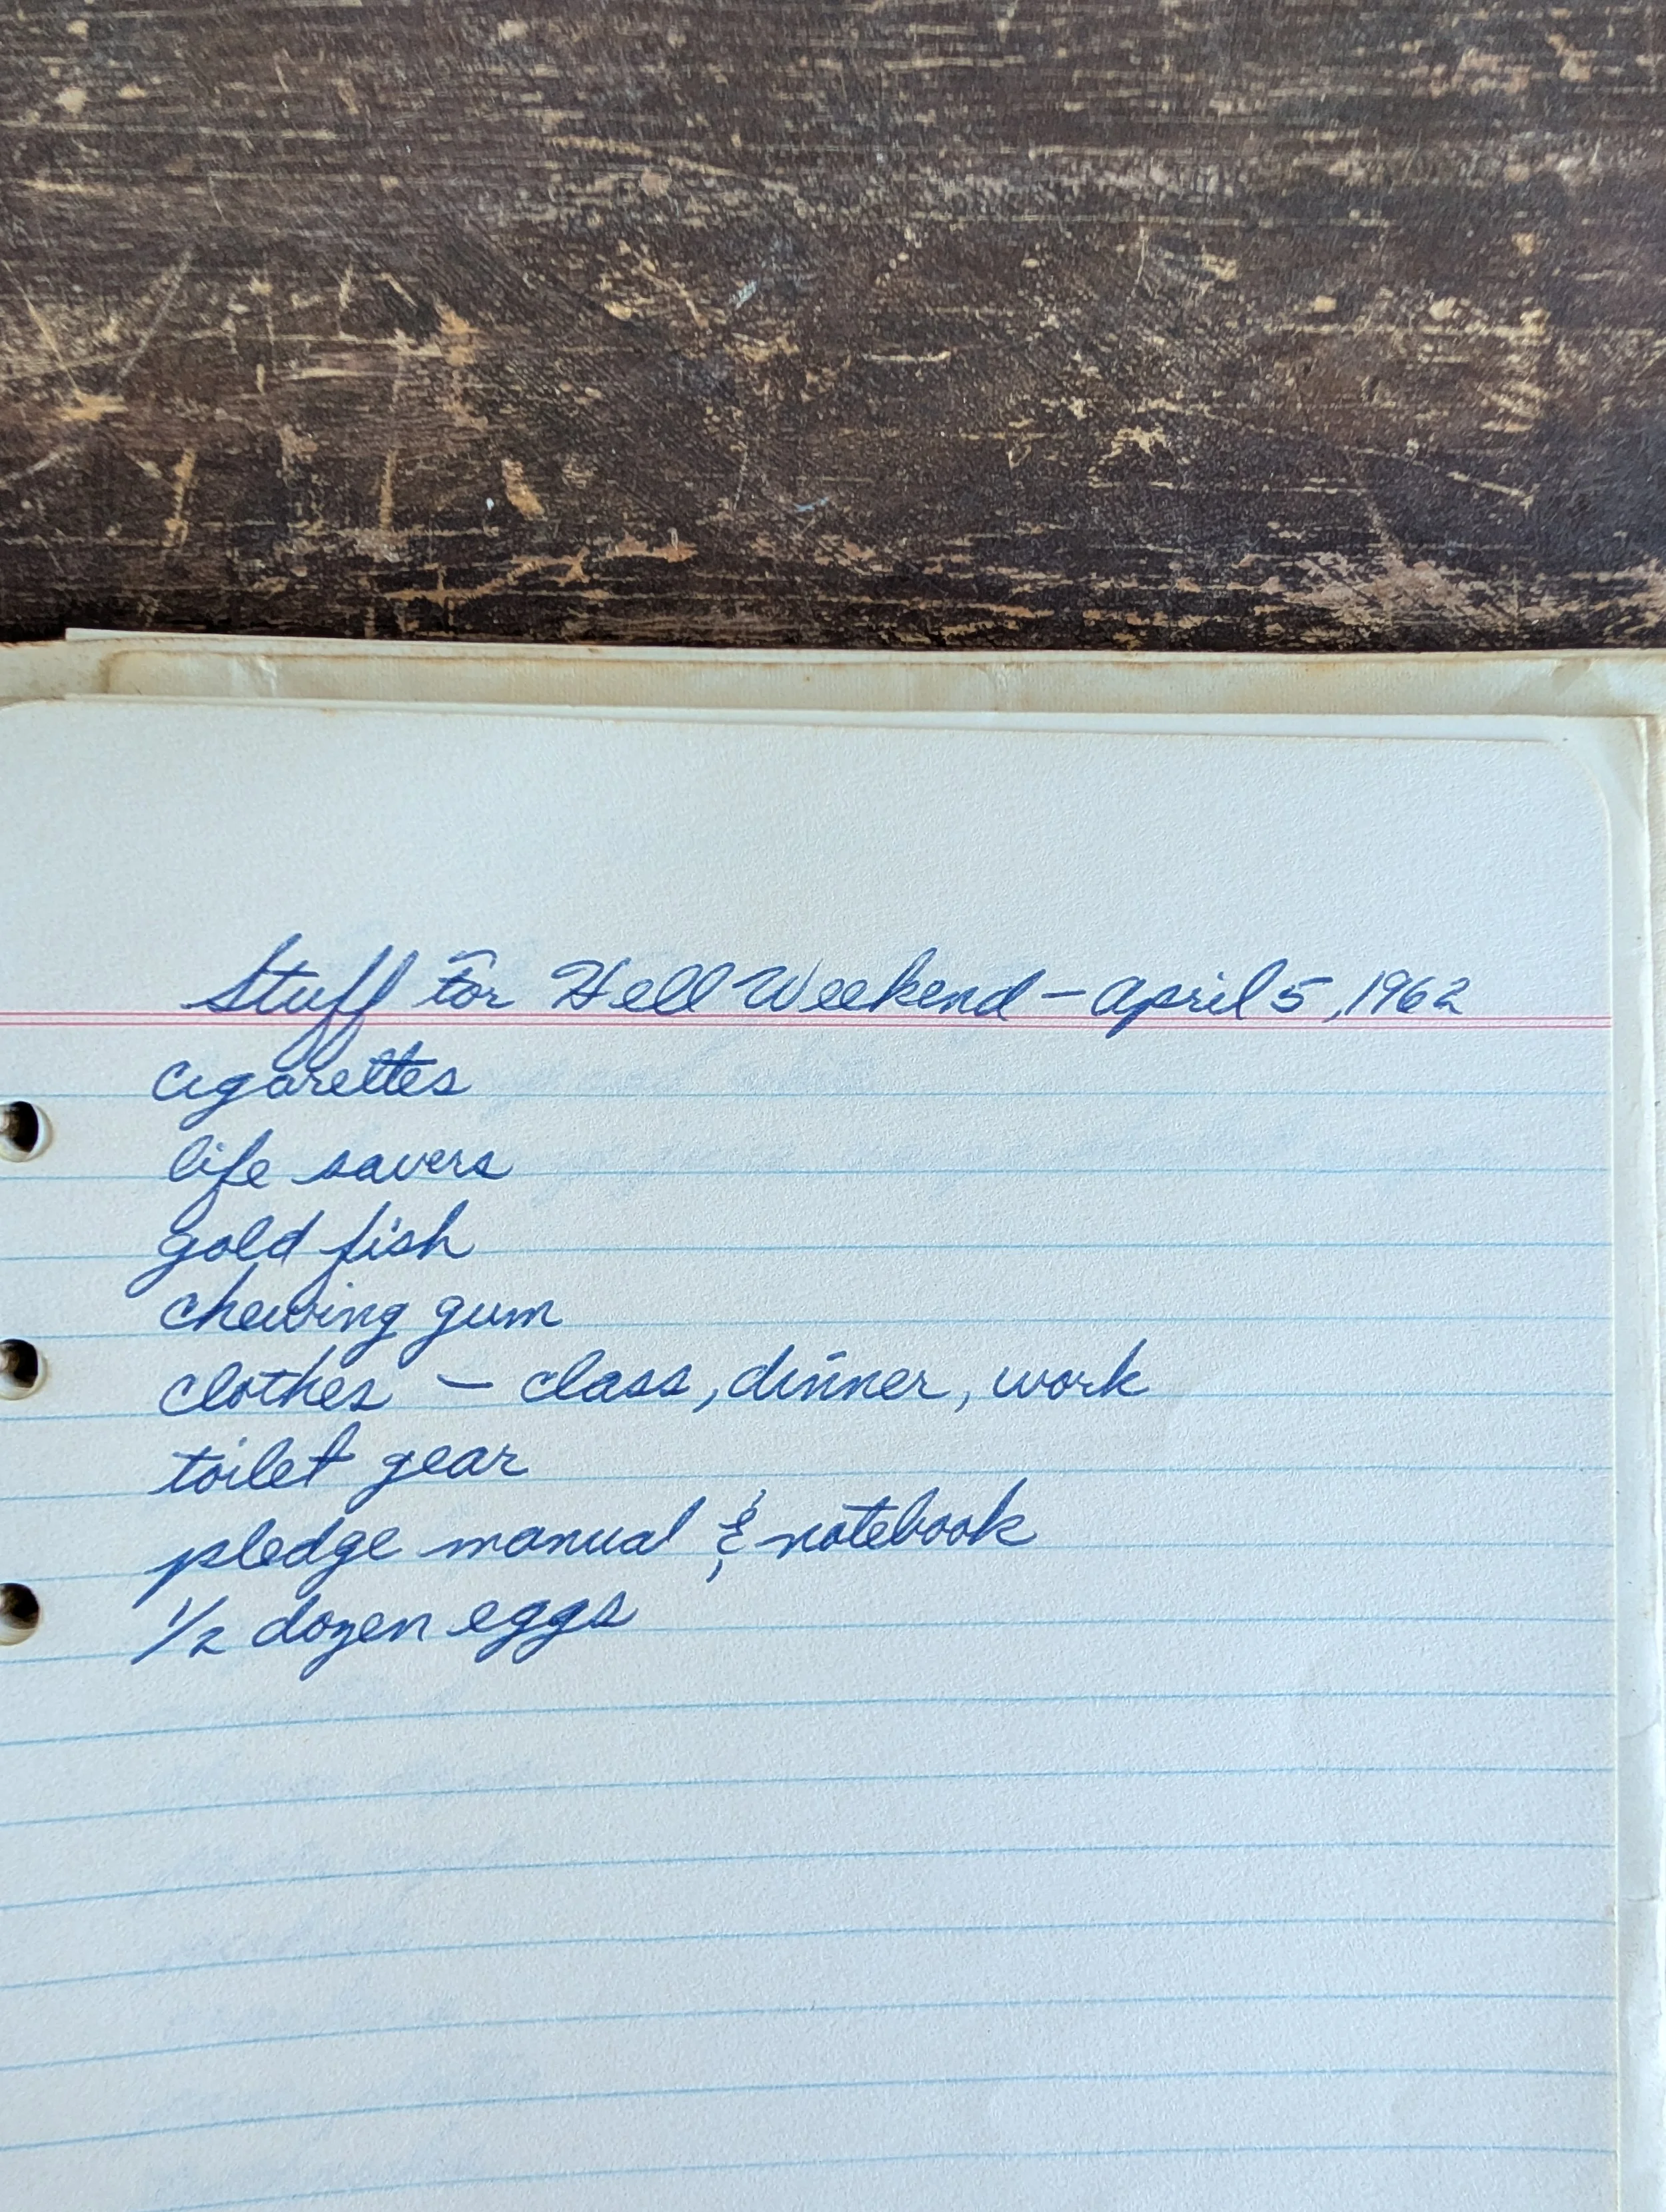 Stuff for Hell Weekend - April 5, 1962
cigarettes
life savers
gold fish
chewing gum
clothes - class, dinner, work
toilet gear
pledge manual & notebook
1/2 dozen eggs